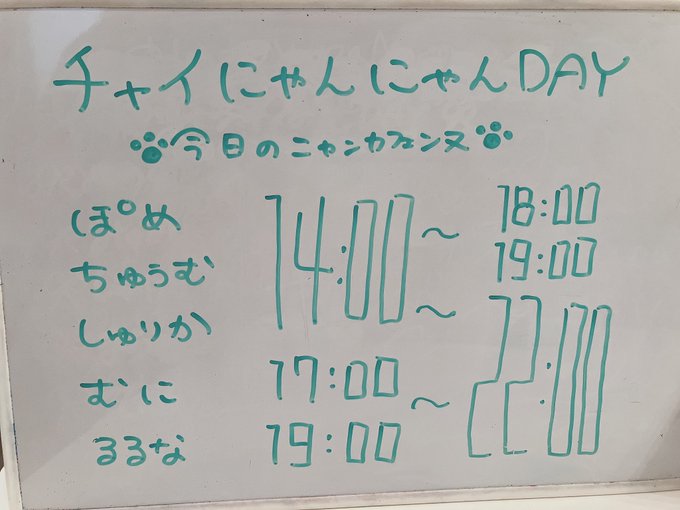 チャイにゃんにゃんDAY
今日のニャンカフェンヌ
ぽめ 14:00 ~ 18:00
ちゅうむ 19:00
しゅりか ~ 22:00
むに 17:00 ~
るるな 19:00